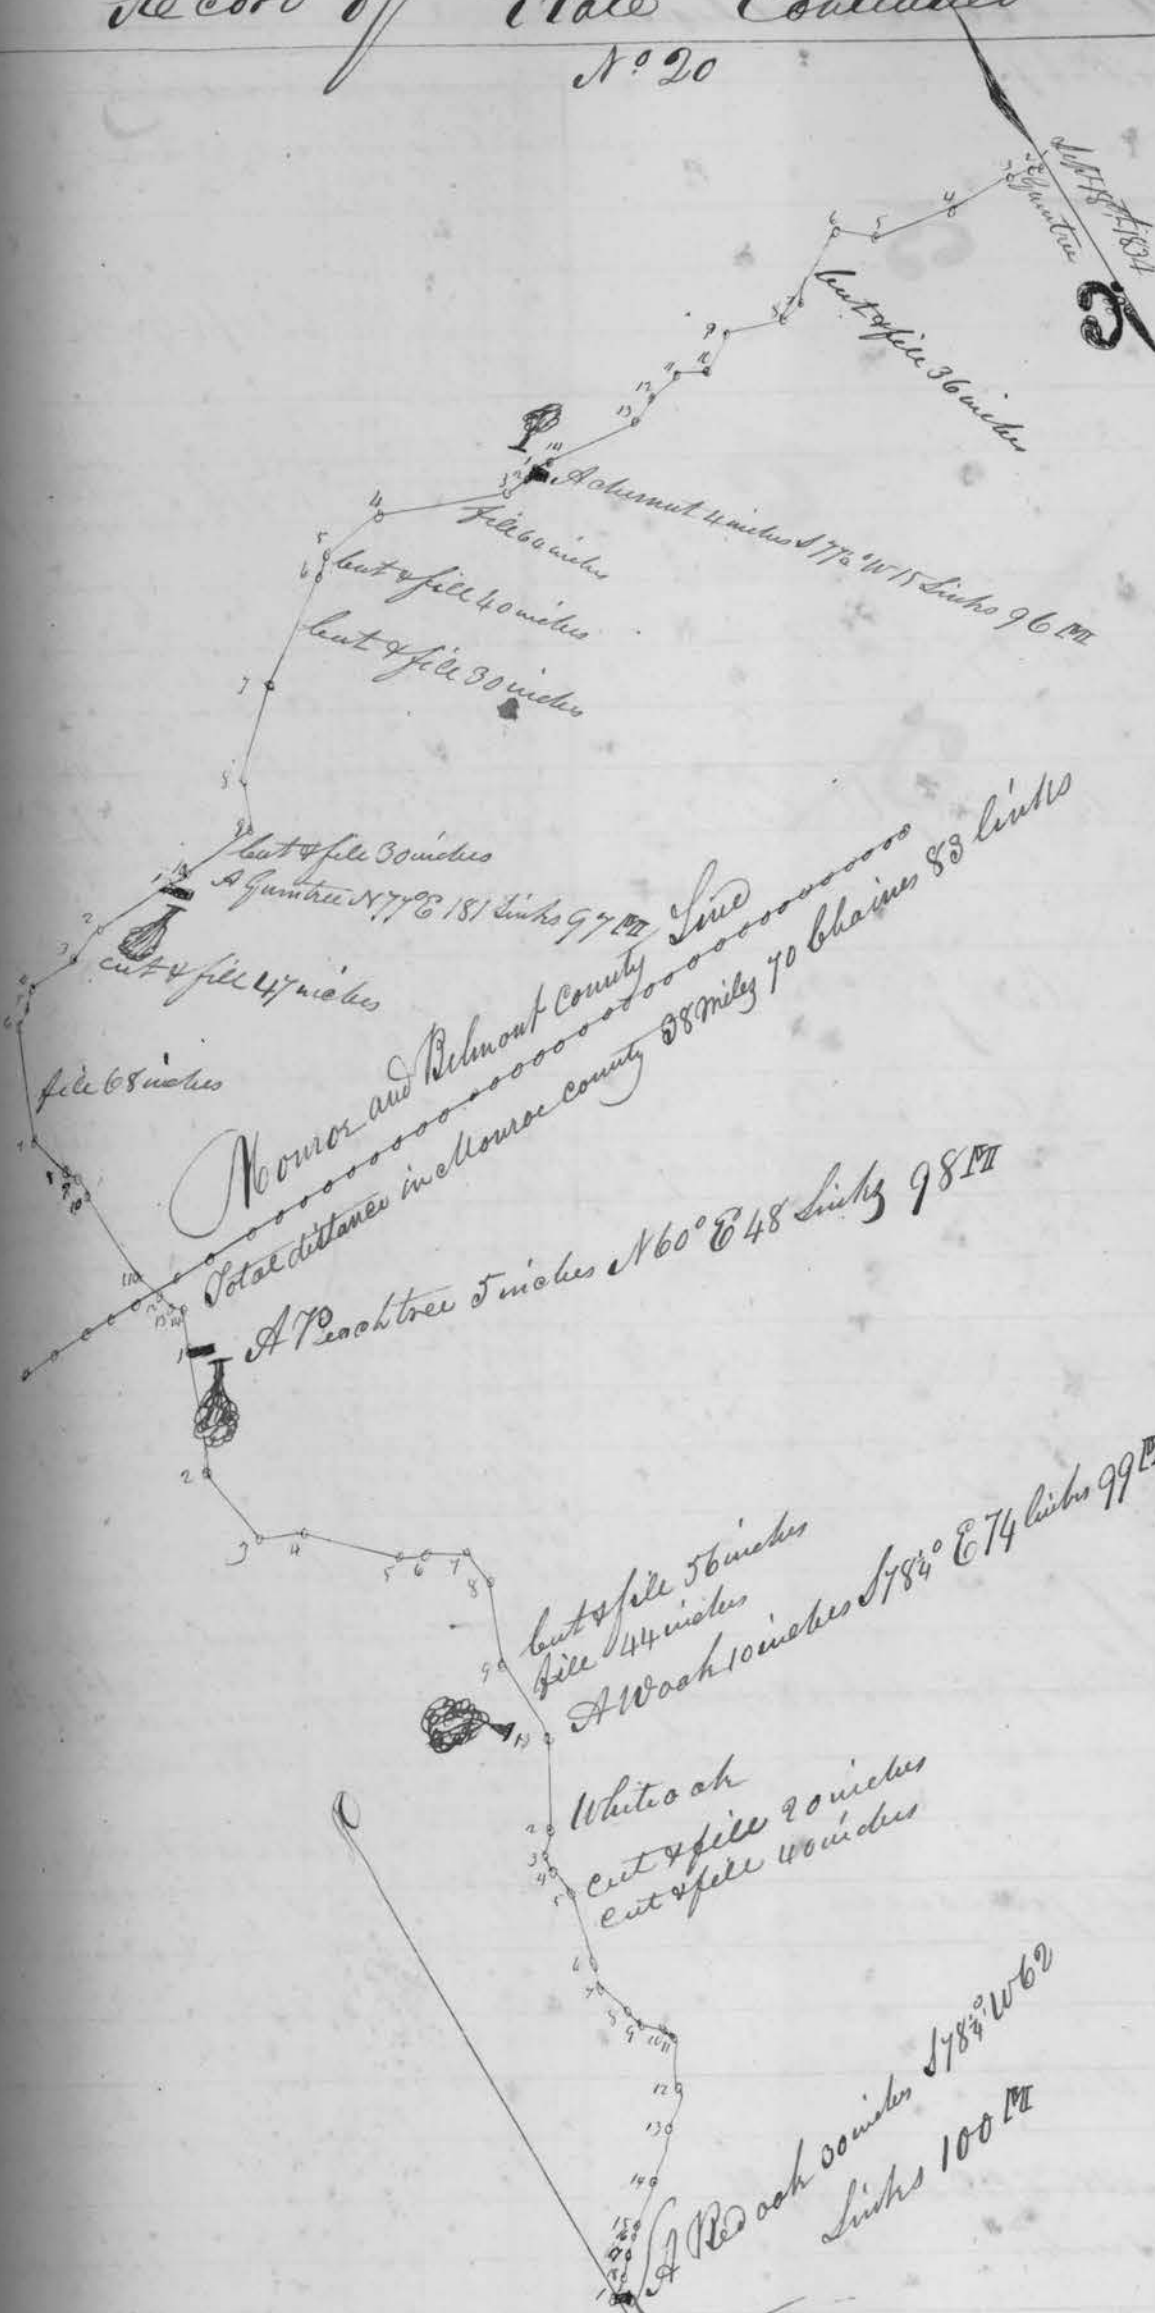 Record of State Continued
No 20
Sept 18th 1834
Gumtree
Cut & fill 36 inches
A chesnut 4 inches S 77½° W 15 Links 96 M
fill 60 inches
Cut & fill 40 inches
Cut & fill 30 inches
Cut & fill 30 inches
A Gumtree N 77° E 181 Links 97 M
cut & fill 47 inches
fill 68 inches
Monroe and Belmont County Line
Total distance in Monroe County 38 miles 70 Chaines 83 links
A Peachtree 5 inches N 60° E 48 Links 98 M
Cut & fill 56 inches
fill 44 inches
A W oak 10 inches S 78¼° E 74 links 99 M
White oak
Cut & fill 20 inches
Cut & fill 40 inches
A Red oak 30 inches S 78¼° W 62
Links 100 M